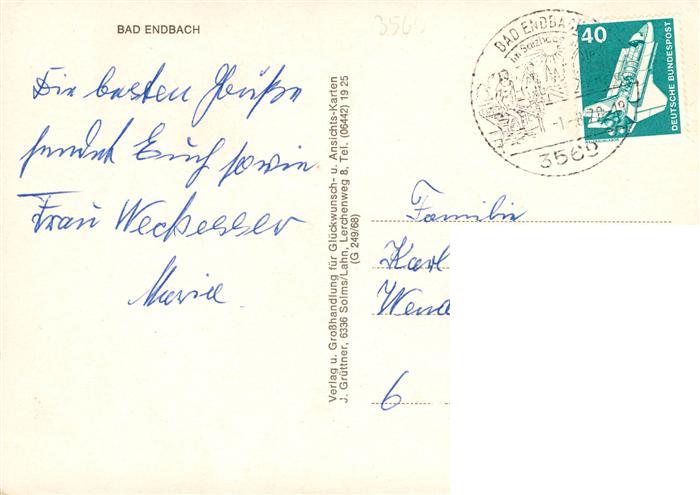 BAD ENDBACH
3569
Die besten Grüße
sendet Euch sowie
Frau Weckesser
Maria
Verlag u. Großhandlung für Glückwunsch- u. Ansichts-Karten
J. Grüttner, 6336 Solms/Lahn, Lerchenweg 8, Tel. (06442) 19 25
(G 249/68)
BAD ENDBACH
im Salzböde
3569
40
DEUTSCHE BUNDESPOST
Familie
Karl
Wend
6